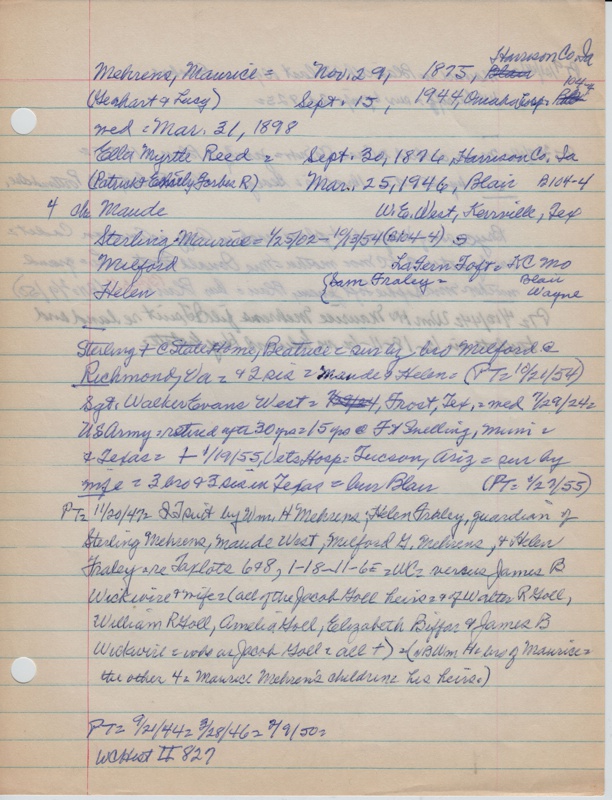 Harrison Co, Ia
Mehrens, Maurice = Nov. 29, 1875, Blair
(Gerhart & Lucy) Sept. 15, 1944, Omaha hosp.
med = Mar. 31, 1898
Ella Myrtle Reed = Sept. 30, 1876, Harrison Co, Ia
(Patrick & Forbes R) Mar. 25, 1946, Blair B104-4
4 ch Maude W.E. West, Kerrville, Tex
Sterling Maurice = 1/25/02 - 10/13/54 (B104-4) S
Milford LaFern Toft = KC Mo
Helen {Sam Fraley = Blair
Wayne
Sterling + @ State Home, Beatrice = sur by bro Milford @
Richmond, Va = & 2 sis = Maude & Helen = (PT = 10/21/54)
Sgt. Walker Evans West = Frost, Tex. = med 7/29/24 =
US Army = retired after 30 yrs = 15 yrs @ Ft Snelling, Minn =
& Texas = + 1/19/55, Vets Hosp = Tucson, Ariz = sur by
wife = 3 bro & 3 sis in Texas = bur Blair (PT = 1/27/55)
PT = 11/20/47 = QT suit by Wm. H Mehrens, Helen Fraley, guardian of
Sterling Mehrens, Maude West, Milford G. Mehrens, & Helen
Fraley = re Taxlots 6&8, 1-18-11-6E = WC = versus James B
Wickwire & wife = (all of the Jacob Goll heirs = & of Walter R Goll,
William R Goll, Amelia Goll, Elizabeth Biffar & James B
Wickwire = Jacob Goll = all +) = (NB Wm H = bro of Maurice =
the other 4 = Maurice Mehren's children = his heirs.)
PT = 9/21/44 = 3/28/46 = 2/9/50 =
WC Hist II 827